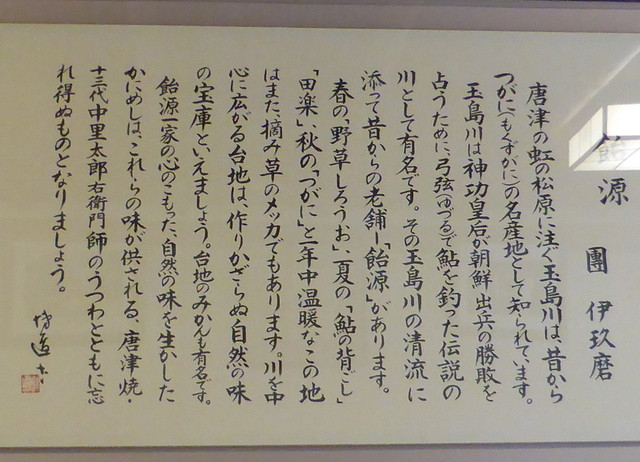 飴源　團　伊玖磨
唐津の虹の松原に注ぐ玉島川は、昔から
つがに(もくずがに)の名産地として知られています。
玉島川は神功皇后が朝鮮出兵の勝敗を
占うために、弓弦(ゆづる)で鮎を釣った伝説の
川として有名です。その玉島川の清流に
添って昔からの老舗－「飴源」があります。
春の、野草しろうお、夏の「鮎の背ごし」
「田楽」、秋の「つがに」と一年中温暖なこの地
はまた、摘み草のメッカでもあります。川を中
心に広がる台地は、作りかざらぬ自然の味
の宝庫といえましょう。台地のみかんも有名です。
飴源一家の心のこもった、自然の味を生かした
かにめしは、これらの味が供される、唐津焼・
十三代中里太郎右衛門師のうつわとともに忘
れ得ぬものとなりましょう。